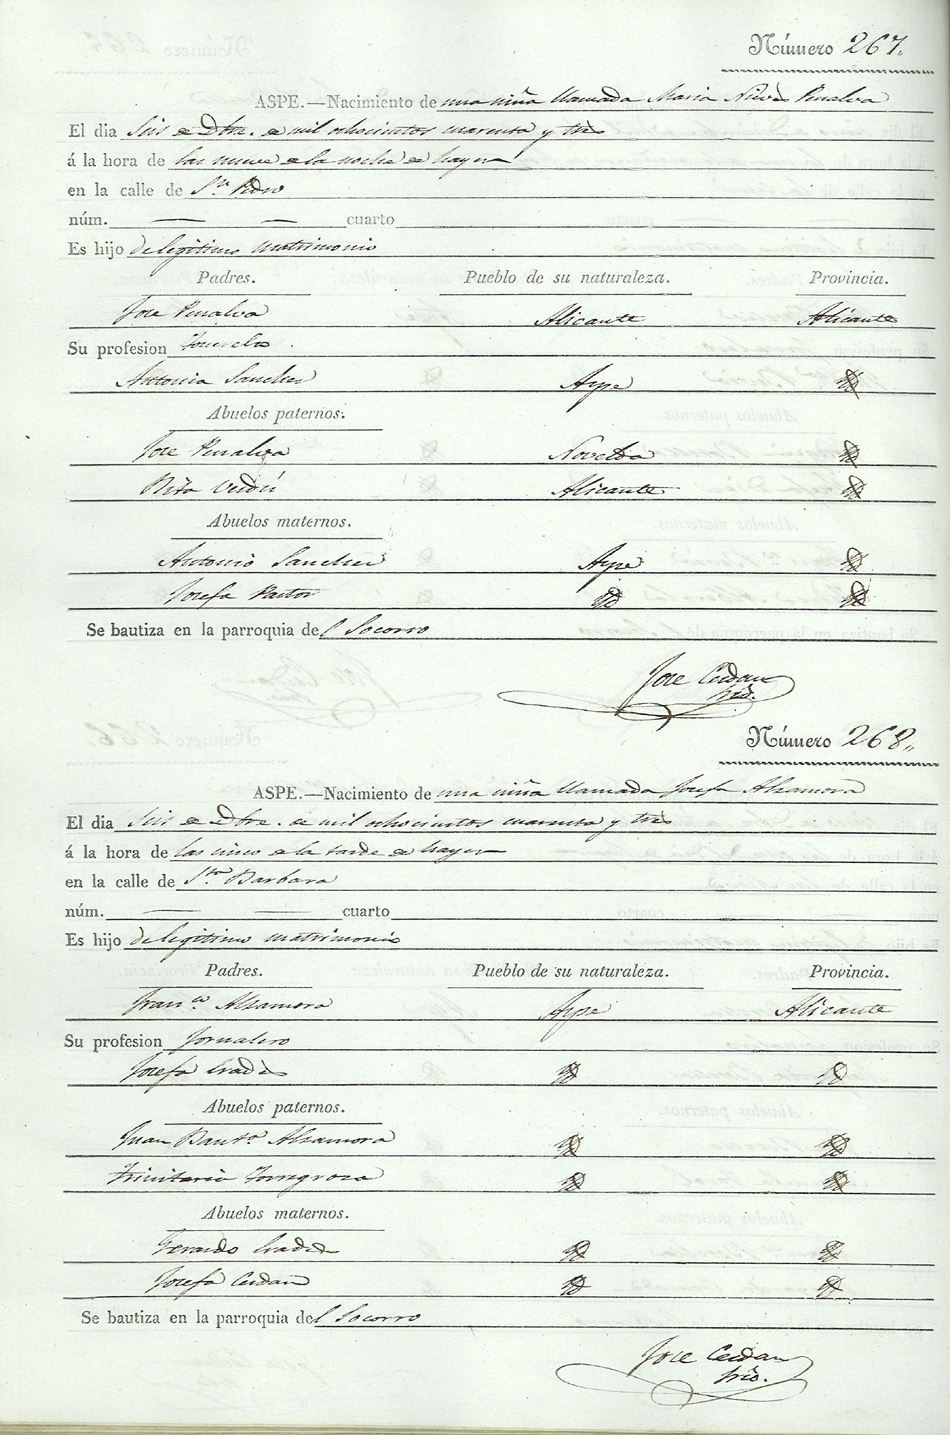 Número 267.
ASPE.—Nacimiento de una niña llamada Maria Nieves Penalva
El dia Seis de Dbre. de mil ochocientos cuarenta y tres
á la hora de las nueve de la noche de hayer
en la calle de Sn. Pedro
núm. — — cuarto
Es hijo de legitimo matrimonio
Padres. Pueblo de su naturaleza. Provincia.
Jose Penalva Alicante Alicante
Su profesion
Antonia Sanchez Aspe Yd
Abuelos paternos.
Jose Penalva Novelda Yd
Rita Verdú Alicante Yd
Abuelos maternos.
Antonio Sanchez Aspe Yd
Josefa Pastor Yd Yd
Se bautiza en la parroquia del Socorro
Jose Cerdan
Srio.
Número 268.
ASPE.—Nacimiento de una niña llamada Josefa Alzamora
El dia Seis de Dbre. de mil ochocientos cuarenta y tres
á la hora de las cinco de la tarde de hayer
en la calle de Sta. Barbara
núm. — — cuarto
Es hijo de legitimo matrimonio
Padres. Pueblo de su naturaleza. Provincia.
Franco. Alzamora Aspe Alicante
Su profesion Jornalero
Josefa Yd Yd
Abuelos paternos.
Juan Bauta. Alzamora Yd Yd
Trinitaria Torregrosa Yd Yd
Abuelos maternos.
Gerardo Yd Yd
Josefa Cerdan Yd Yd
Se bautiza en la parroquia del Socorro
Jose Cerdan
Srio.